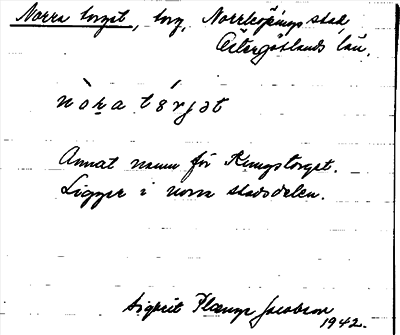 Norra torget, torg, Norrköpings stad
Östergötlands län.
nòra tórjət
Annat namn för Kungstorget.
Ligger i norra stadsdelen.
Sigrit Plænge Jacobson
1942.